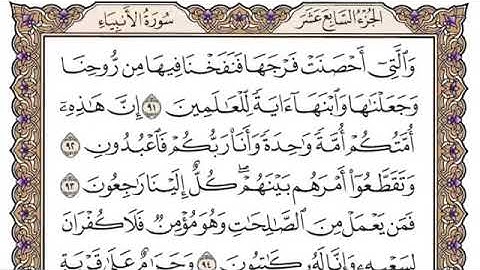 الجزء السابع عشر سورة الأنبياء
وَٱلَّتِيٓ أَحۡصَنَتۡ فَرۡجَهَا فَنَفَخۡنَا فِيهَا مِن رُّوحِنَا
وَجَعَلۡنَٰهَا وَٱبۡنَهَآ ءَايَةٗ لِّلۡعَٰلَمِينَ ٩١ إِنَّ هَٰذِهِۦٓ
أُمَّتُكُمۡ أُمَّةٗ وَٰحِدَةٗ وَأَنَا۠ رَبُّكُمۡ فَٱعۡبُدُونِ ٩٢
وَتَقَطَّعُوٓاْ أَمۡرَهُم بَيۡنَهُمۡۖ كُلٌّ إِلَيۡنَا رَٰجِعُونَ ٩٣
فَمَن يَعۡمَلۡ مِنَ ٱلصَّٰلِحَٰتِ وَهُوَ مُؤۡمِنٞ فَلَا كُفۡرَانَ
لِسَعۡيِهِۦ وَإِنَّا لَهُۥ كَٰتِبُونَ ٩٤ وَحَرَٰمٌ عَلَىٰ قَرۡيَةٍ